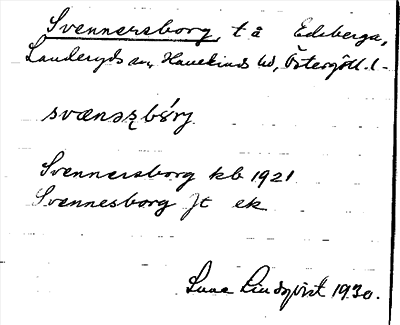 Svennersborg, t å Edeberga,
Landeryds sn, Hanekinds hd, Östergötl. l.
svænəʂbórj
Svennersborg kb 1921
Svennesborg Jt ek
Lindqvist 1930.